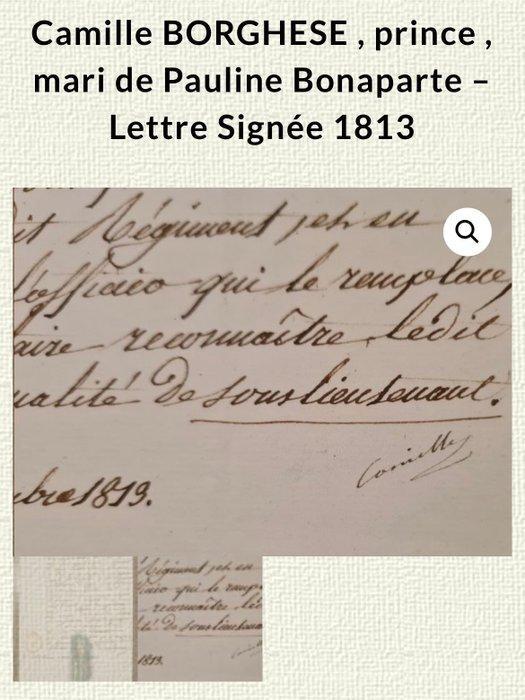 Camille BORGHESE , prince ,
mari de Pauline Bonaparte –
Lettre Signée 1813
it Régiment, et en
l'officier qui le remplace,
aire reconnaître ledit
ualité de sous lieutenant.
Camille
bre 1813.